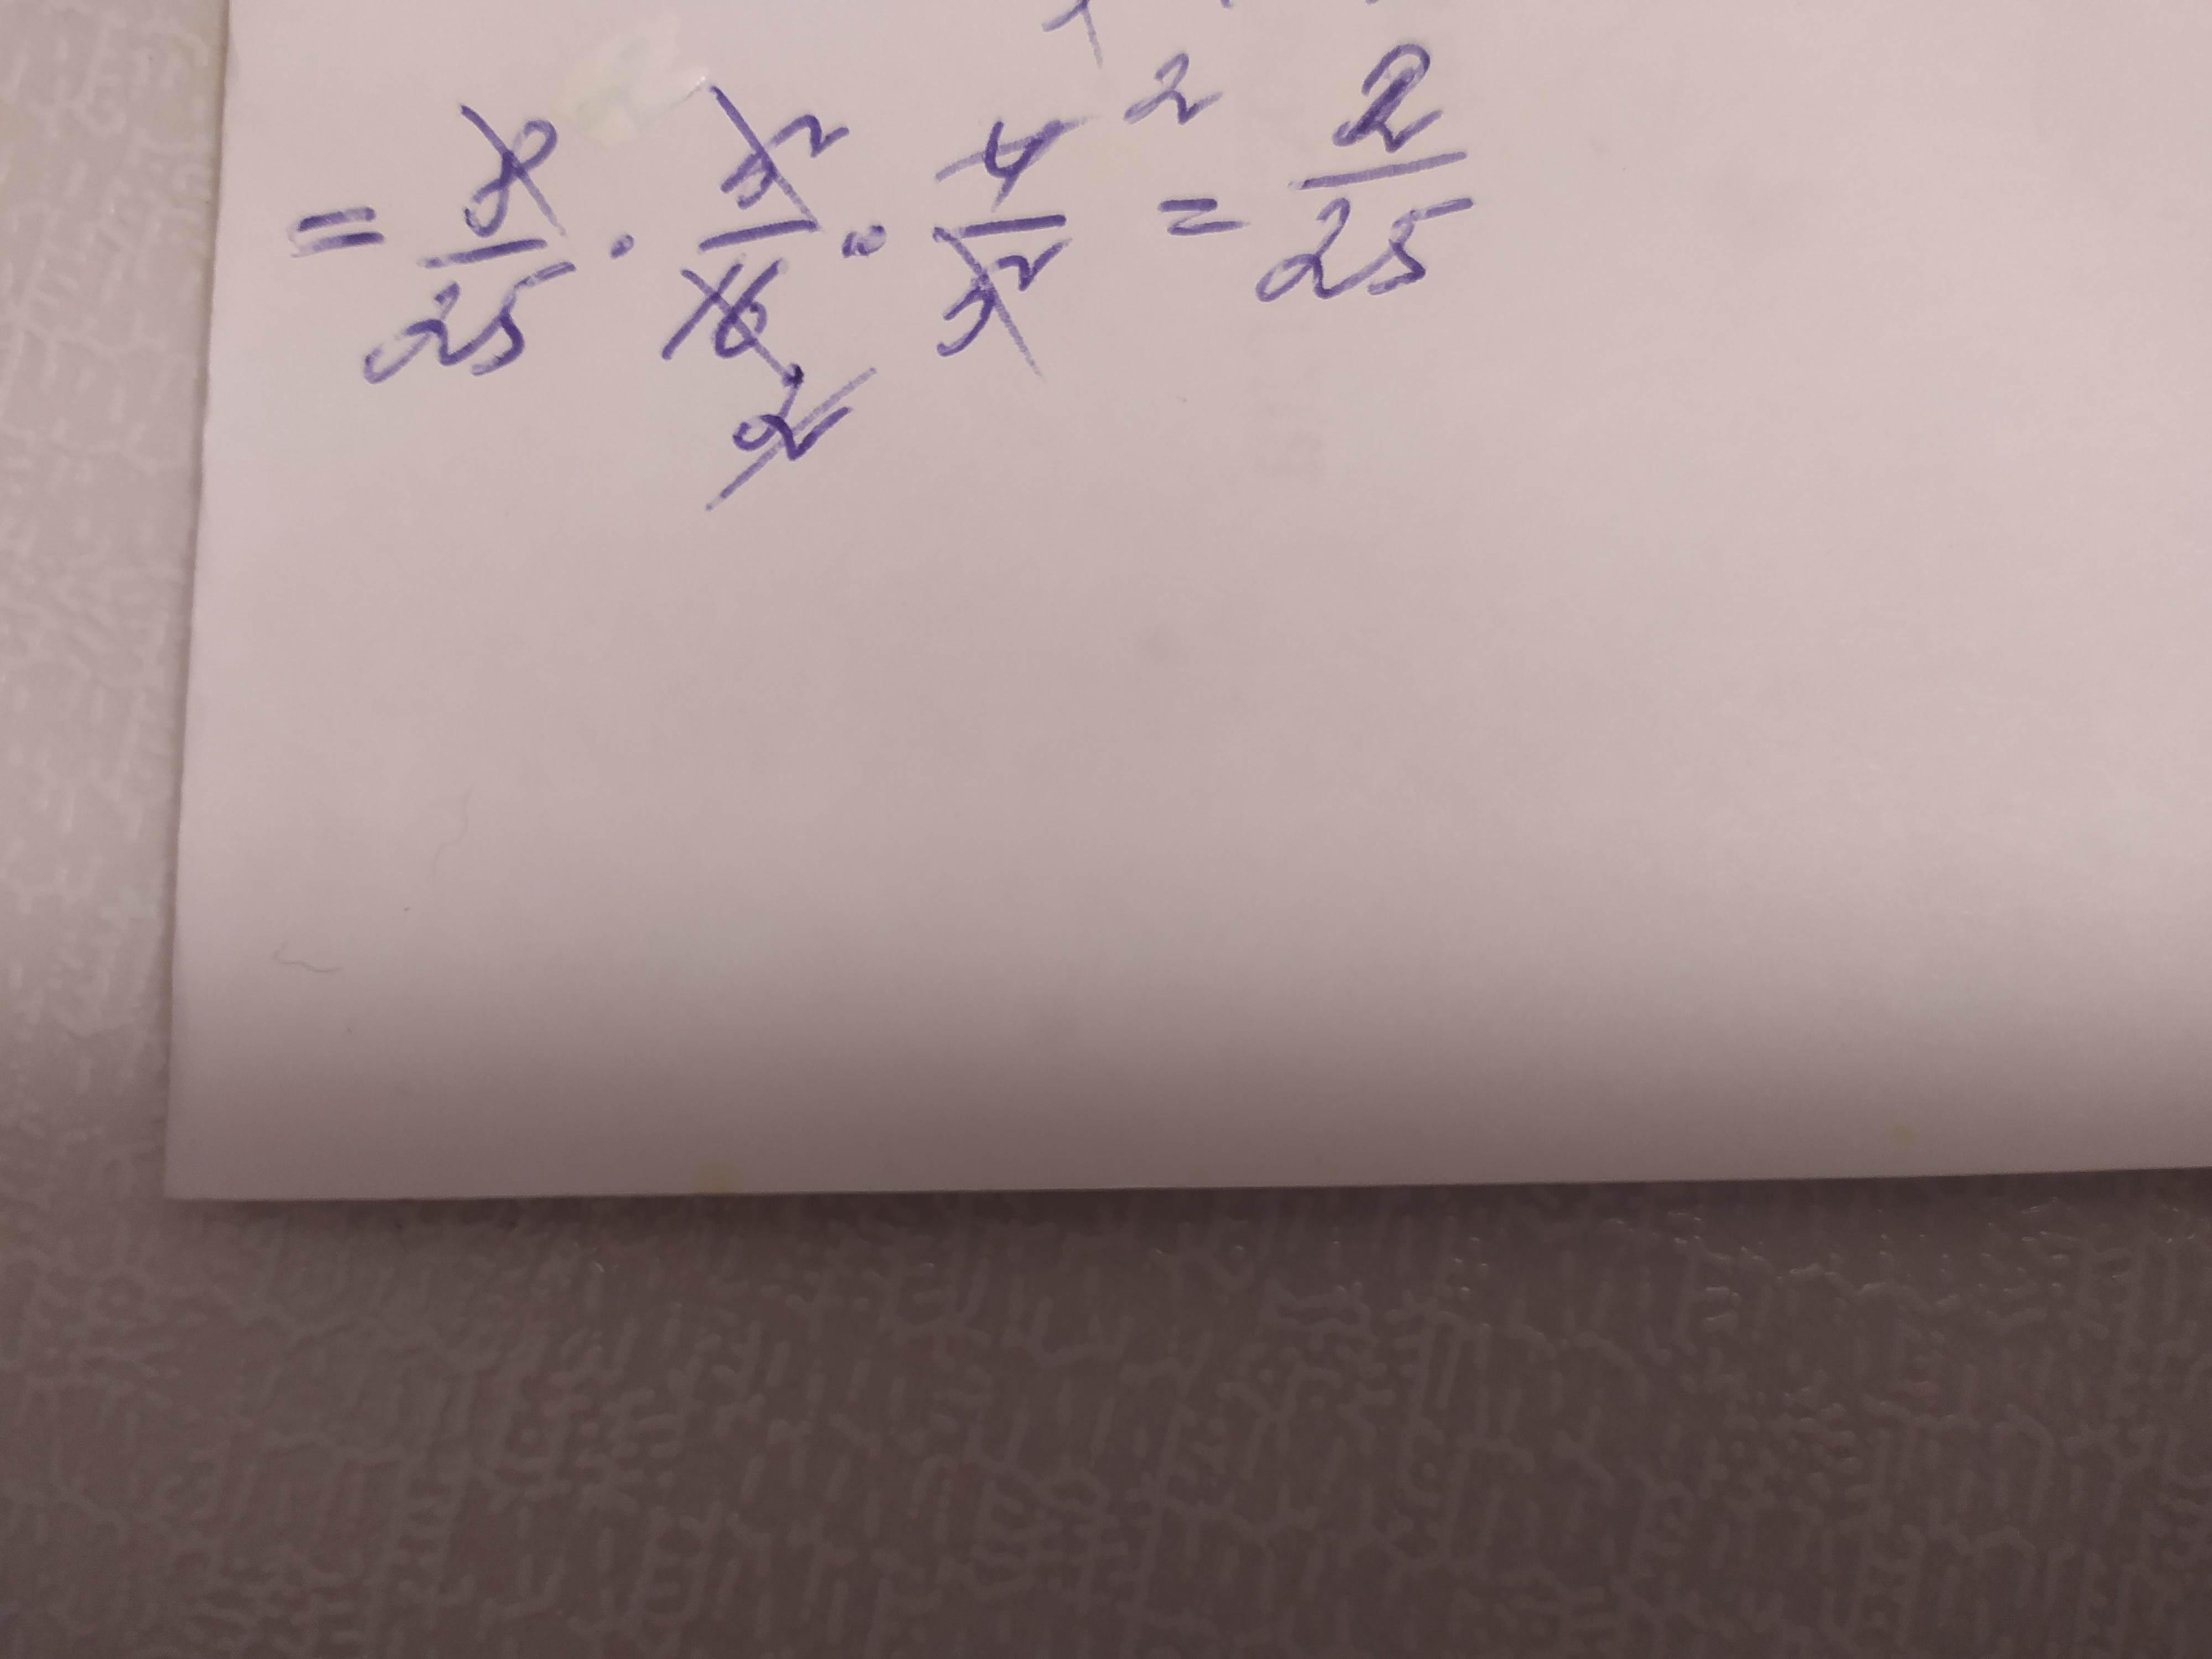 = 8/25 · x²/16 · 4/x² = 2/25
2
2